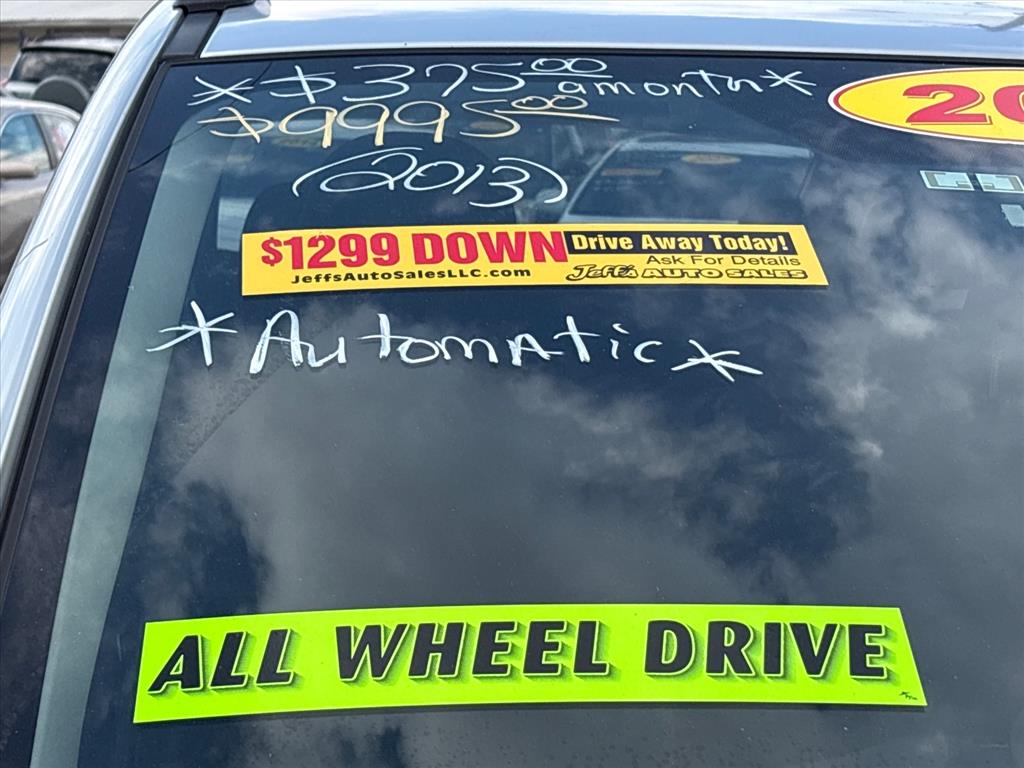 *$375.00 a month*
$9995.00
(2013)
20
$1299 DOWN Drive Away Today!
Ask For Details
JeffsAutoSalesLLC.com Jeff's AUTO SALES
*Automatic*
ALL WHEEL DRIVE